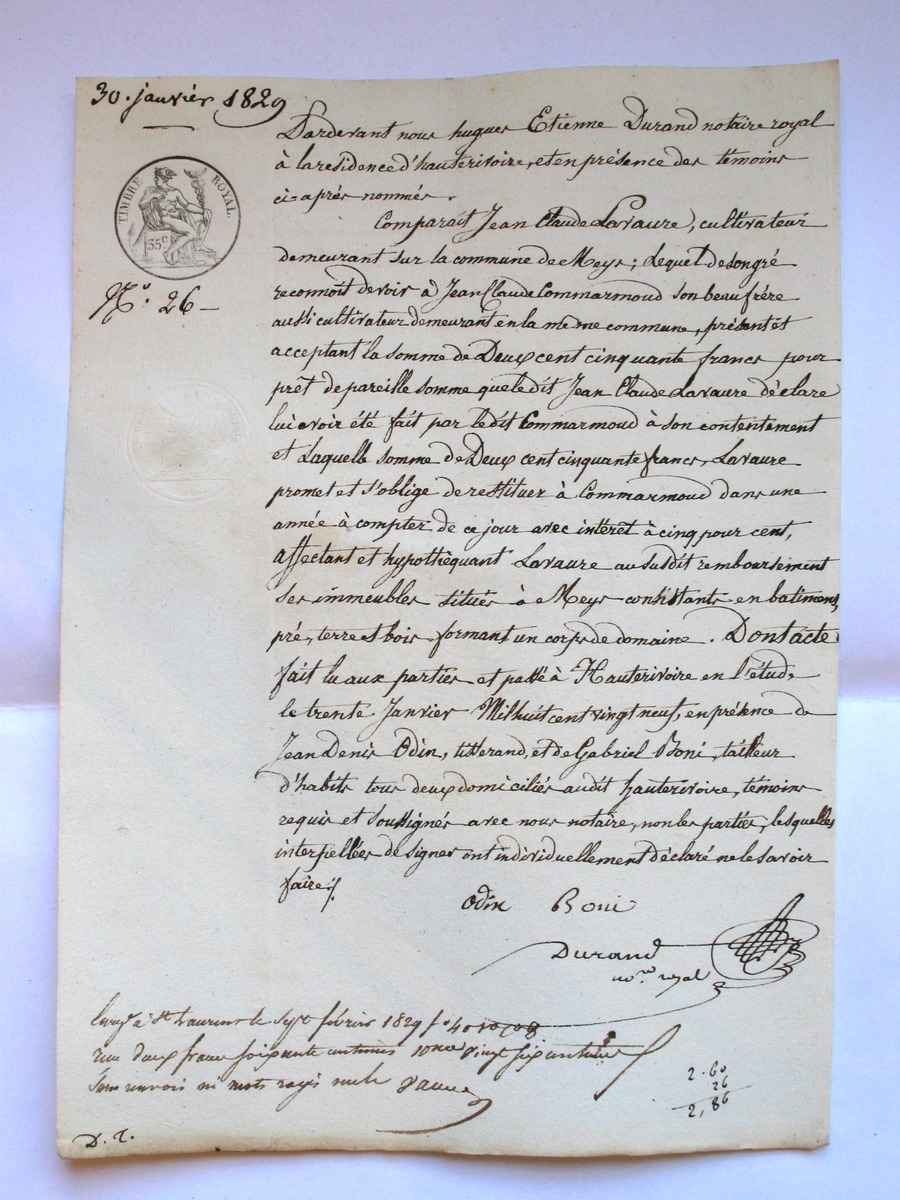 30. janvier 1829
TIMBRE ROYAL.
35 c.
N.º 26
Pardevant nous hugues Etienne Durand notaire royal
à la residence d'hauterivoire, et en présence des témoins
ci-après nommés.
Comparait Jean Claude Lavaure, cultivateur
demeurant sur la commune de Meys; Lequel de son gré
reconnoit devoir à Jean Claude Commarmoud son beau frère
aussi cultivateur demeurant en la même commune, présent et
acceptant la somme de Deux cent cinquante francs pour
prêt de pareille somme que le dit Jean Claude Lavaure déclare
lui avoir été fait par le dit Commarmoud à son contentement
et Laquelle somme de Deux cent cinquante francs, Lavaure
promet et s'oblige de restituer à Commarmoud dans une
année à compter de ce jour avec intéret à cinq pour cent,
affectant et hypothéquant Lavaure au susdit remboursement
ses immeubles situés à Meys consistants en batiments,
pré, terre et bois formant un corps de domaine. Dont acte
fait lu aux parties et passé à Hauterivoire en l'étude
le trente Janvier Mil huit cent vingt neuf, en présence de
Jean Denis Odin, tisserand, et de Gabriel Boni, tailleur
d'habits tous deux domiciliés audit hauterivoire, témoins
requis et soussignés avec nous notaire, non les parties, lesquelles
interpellées de signer ont individuellement déclaré ne le savoir
faire./.
Odin Boni
Durand
no.re royal
à St Laurent le sept février 1829 fo 40
deux francs soixante centimes vingt six centimes
sans renvoi ni mots rayés nuls
2.60
26
2,86
D. T.